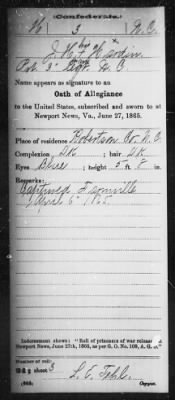 Confederate.
H 3 N.C.
Hardin
Co. 3 Regt. N C
Name appears as signature to an
Oath of Allegiance
to the United States, subscribed and sworn to at
Newport News, Va., June 27, 1865.
Place of residence Robertson Co. N. C.
Complexion Dk ; hair Dk
Eyes Blue ; height 5 ft. 8 in.
Remarks:
Captured Farmville
April 6" 1865.
Indorsement shows: "Roll of prisoners of war released
Newport News, June 27th, 1865, as per G. O. No. 109, A. G.
Number of roll:
3
Copyist.